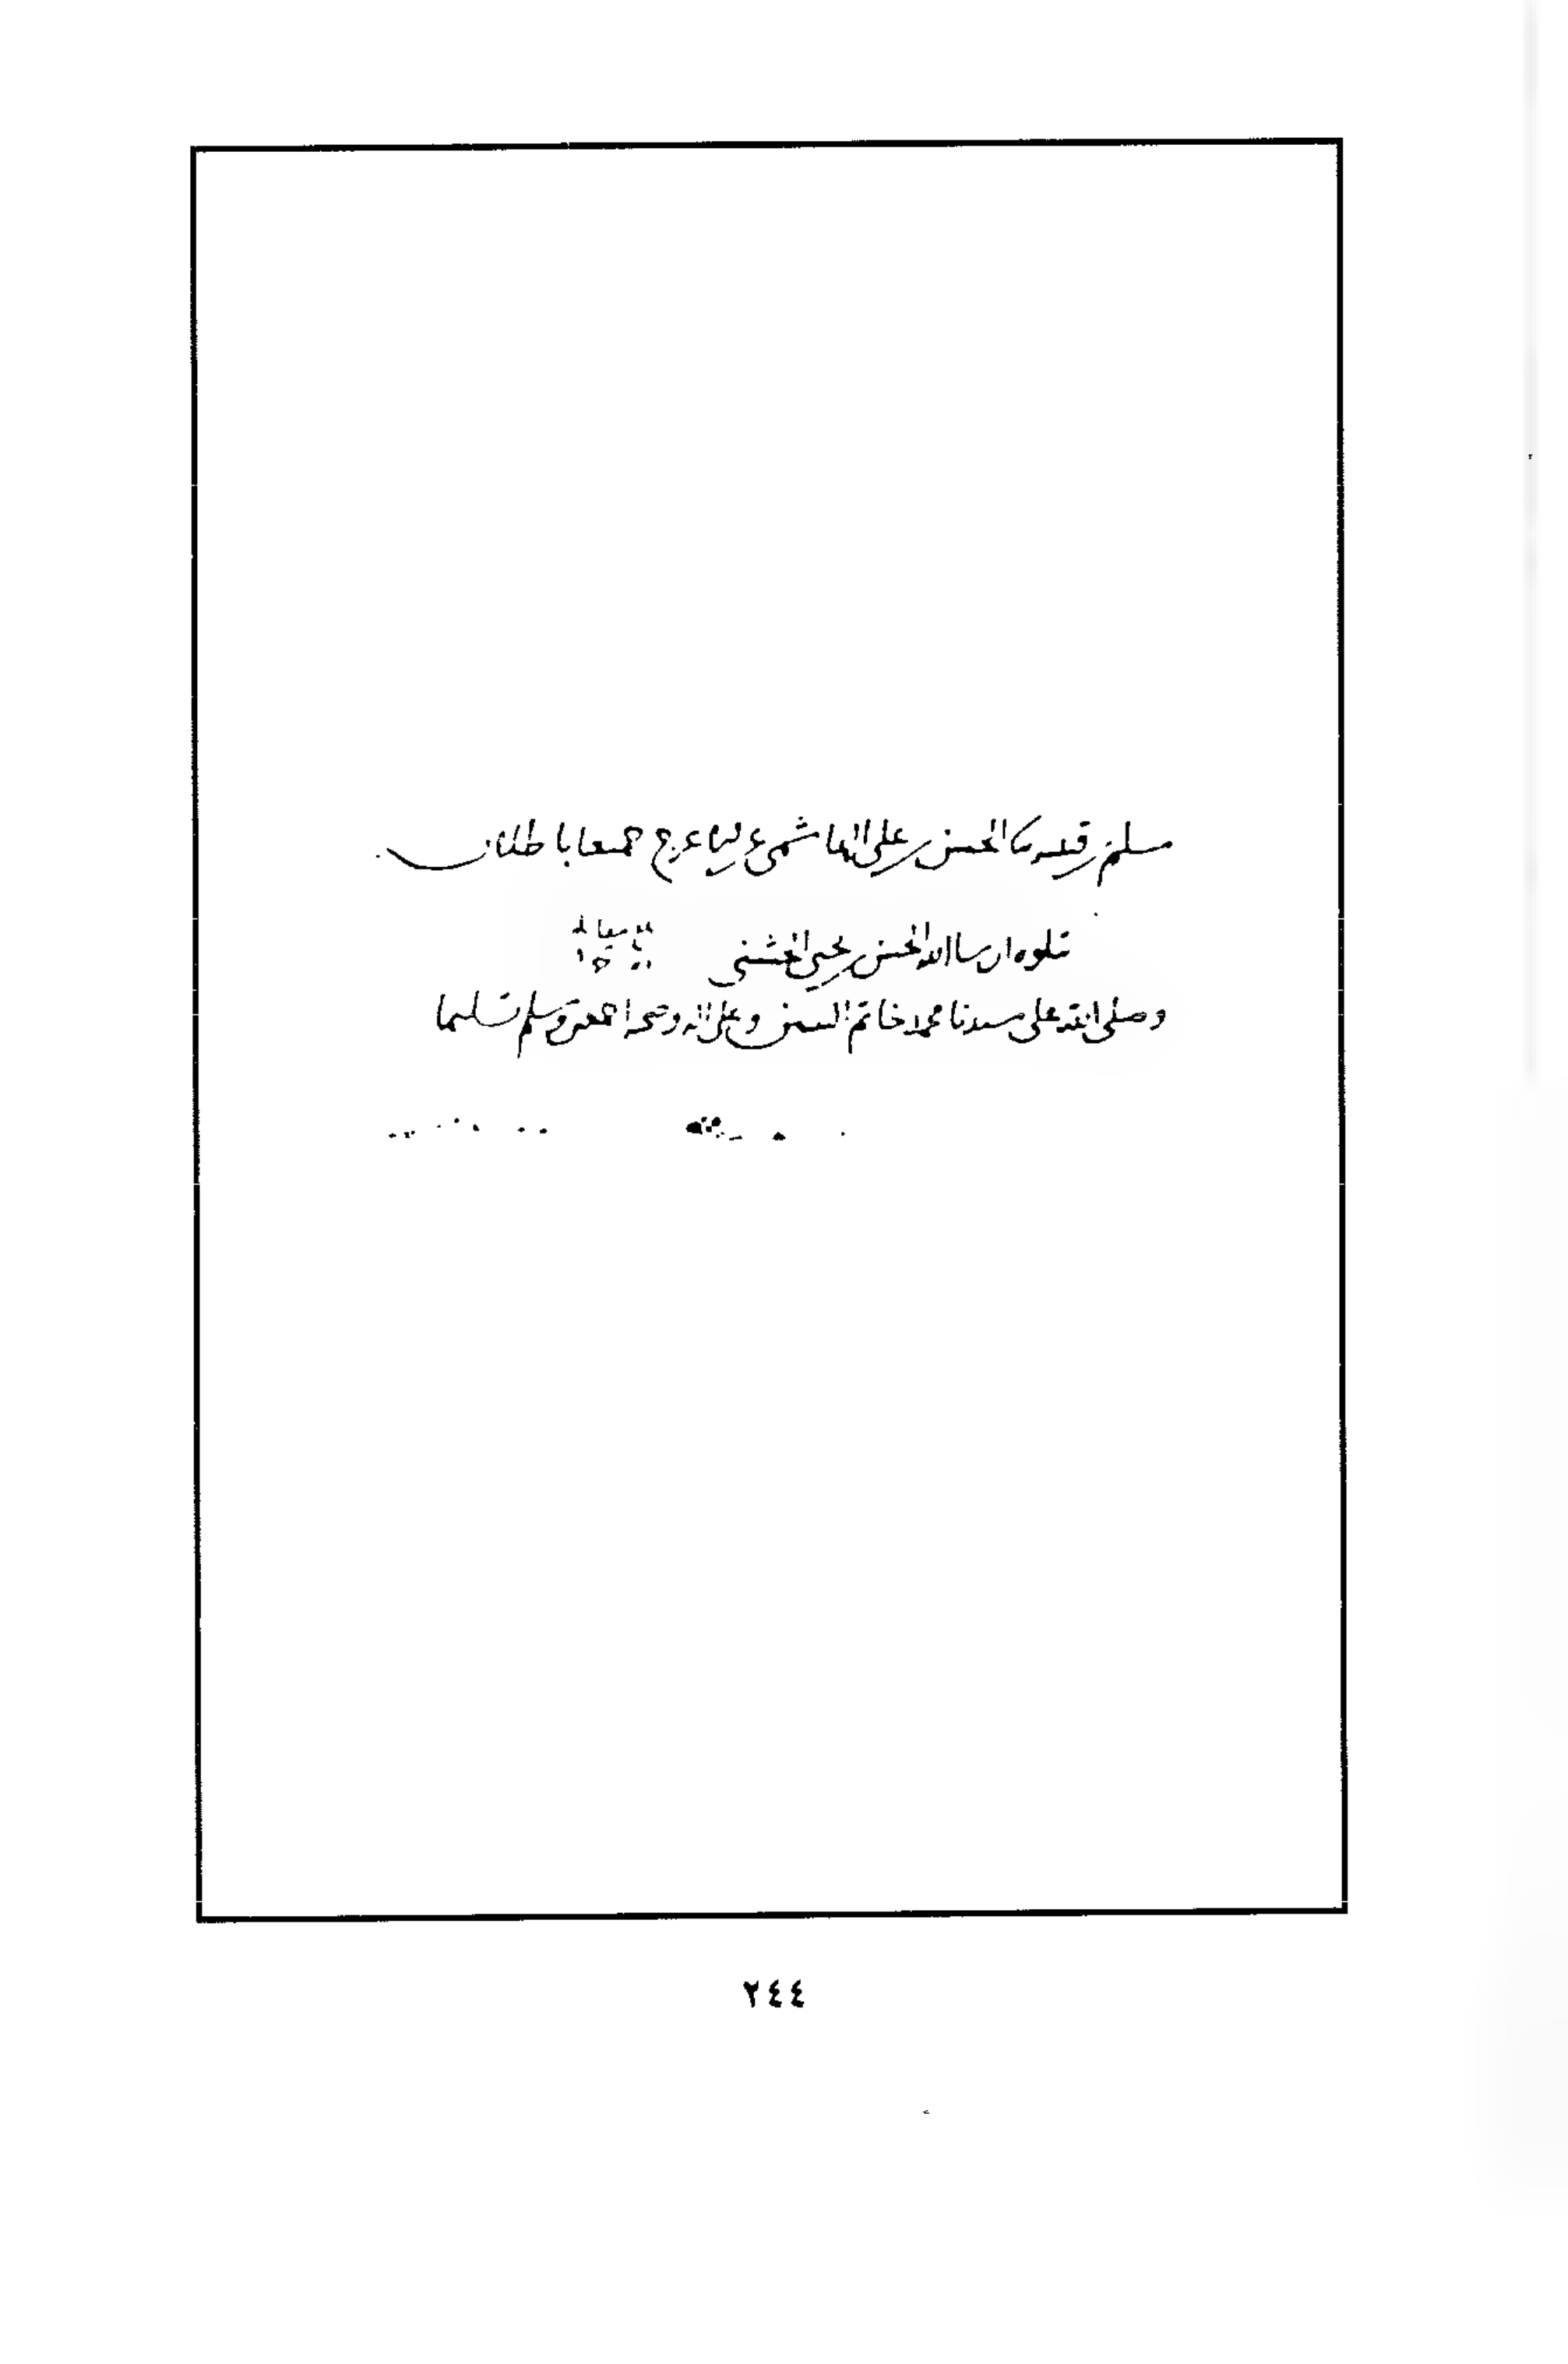 سلم بن قتيبه نا الحسن بن علي الهاشمي عن الاعرج جميعا باطلان
يتلوه ان شا الله الحسن بن يحيى الخشني
وصلى الله على سيدنا محمد خاتم النبيين وعلى اله وصحبه اجمعين وسلم تسليما
٢٤٤